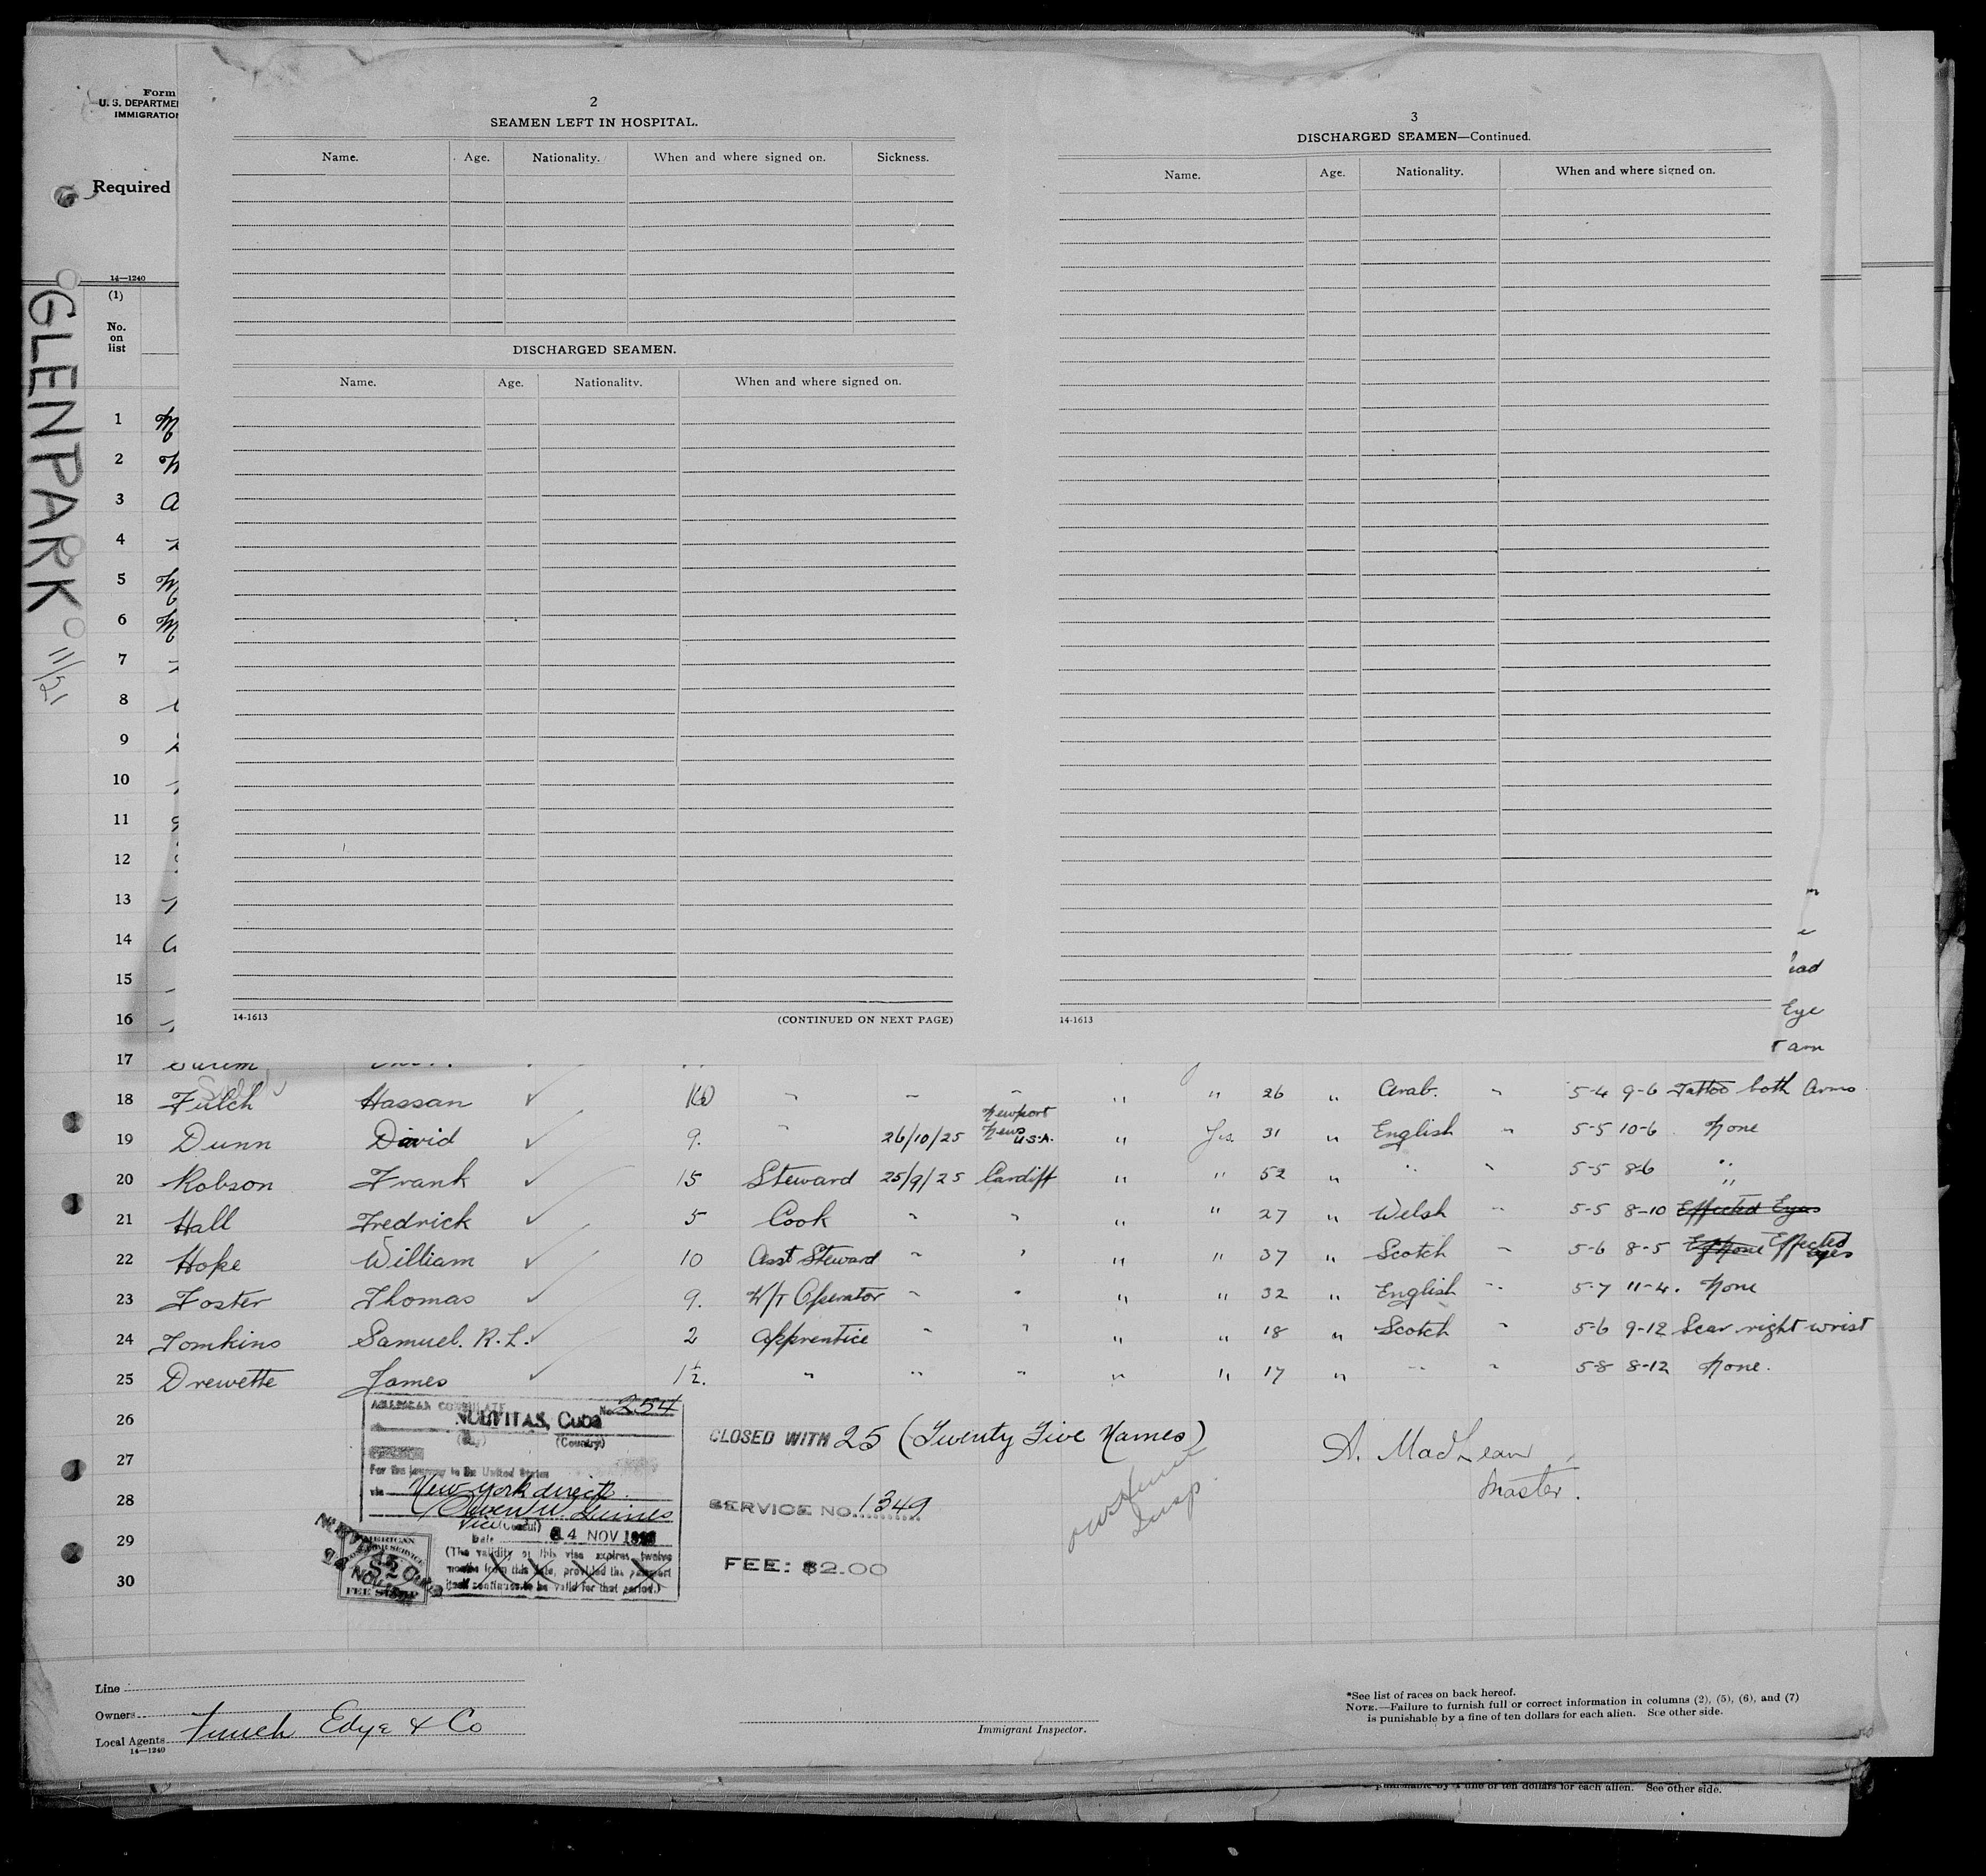 Form
U. S. DEPARTME
IMMIGRATION
Required
14—1240
(1)
No.
on
list
GLENPARK
11/21
2
SEAMEN LEFT IN HOSPITAL.
Name. Age. Nationality. When and where signed on. Sickness.
DISCHARGED SEAMEN.
Name. Age. Nationality. When and where signed on.
14-1613 (CONTINUED ON NEXT PAGE)
3
DISCHARGED SEAMEN—Continued.
Name. Age. Nationality. When and where signed on.
14-1613
1
2
3
4
5
6
7
8
9
10
11
12
13
14
15
16 Eye
17
18 Futch Hassan ✓ 10 " " " " " 26 " Arab. " 5-4 9-6 Tattoo both Arms
19 Dunn David ✓ 9. " 26/10/25 Newport News U.S.A. " Yes 31 " English " 5-5 10-6 None
20 Robson Frank ✓ 15 Steward 25/9/25 Cardiff " " 52 " " " 5-5 8-6 "
21 Hall Fredrick ✓ 5 Cook " " " " 27 " Welsh " 5-5 8-10 Effected Eyes "
22 Hope William ✓ 10 Asst Steward " " " " 37 " Scotch " 5-6 8-5 None Effected eyes
23 Foster Thomas ✓ 9. W/T Operator " " " " 32 " English " 5-7 11-4. None
24 Tomkins Samuel. R. L. ✓ 2 Apprentice " " " " 18 " Scotch " 5-6 9-12 Scar right wrist
25 Drewette James ✓ 1½. " " " " " 17 " " " 5-8 8-12 None.
26
27
28
29
30
AMERICAN CONSULATE No. 254
NUEVITAS, Cuba
(Country)
For the journey to the United States
via New York direct
Vice Consul
Date 14 NOV
(The validity of this visa expires twelve
months from this date, provided the passport
itself continues to be valid for that period.)
AMERICAN
FEE STAMP
CLOSED WITH 25 (Twenty Five Names)
SERVICE NO. 1349
FEE: $2.00
Insp.
A. MacLean
Master.
Line
Owners
Local Agents Funch Edye & Co
14—1240
Immigrant Inspector.
*See list of races on back hereof.
NOTE.—Failure to furnish full or correct information in columns (2), (5), (6), and (7)
is punishable by a fine of ten dollars for each alien. See other side.
punishable by a fine of ten dollars for each alien. See other side.